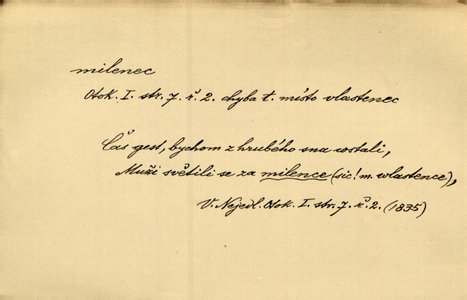 milenec
Otok. I. str. 7. ř. 2. chyba t. místo vlastenec
Čas gest, bychom z hrubého sna wstali,
Muži světili se za milence (sic! m. wlastence),
V. Nejedl. Otok. I. str. 7. ř. 2. (1835)